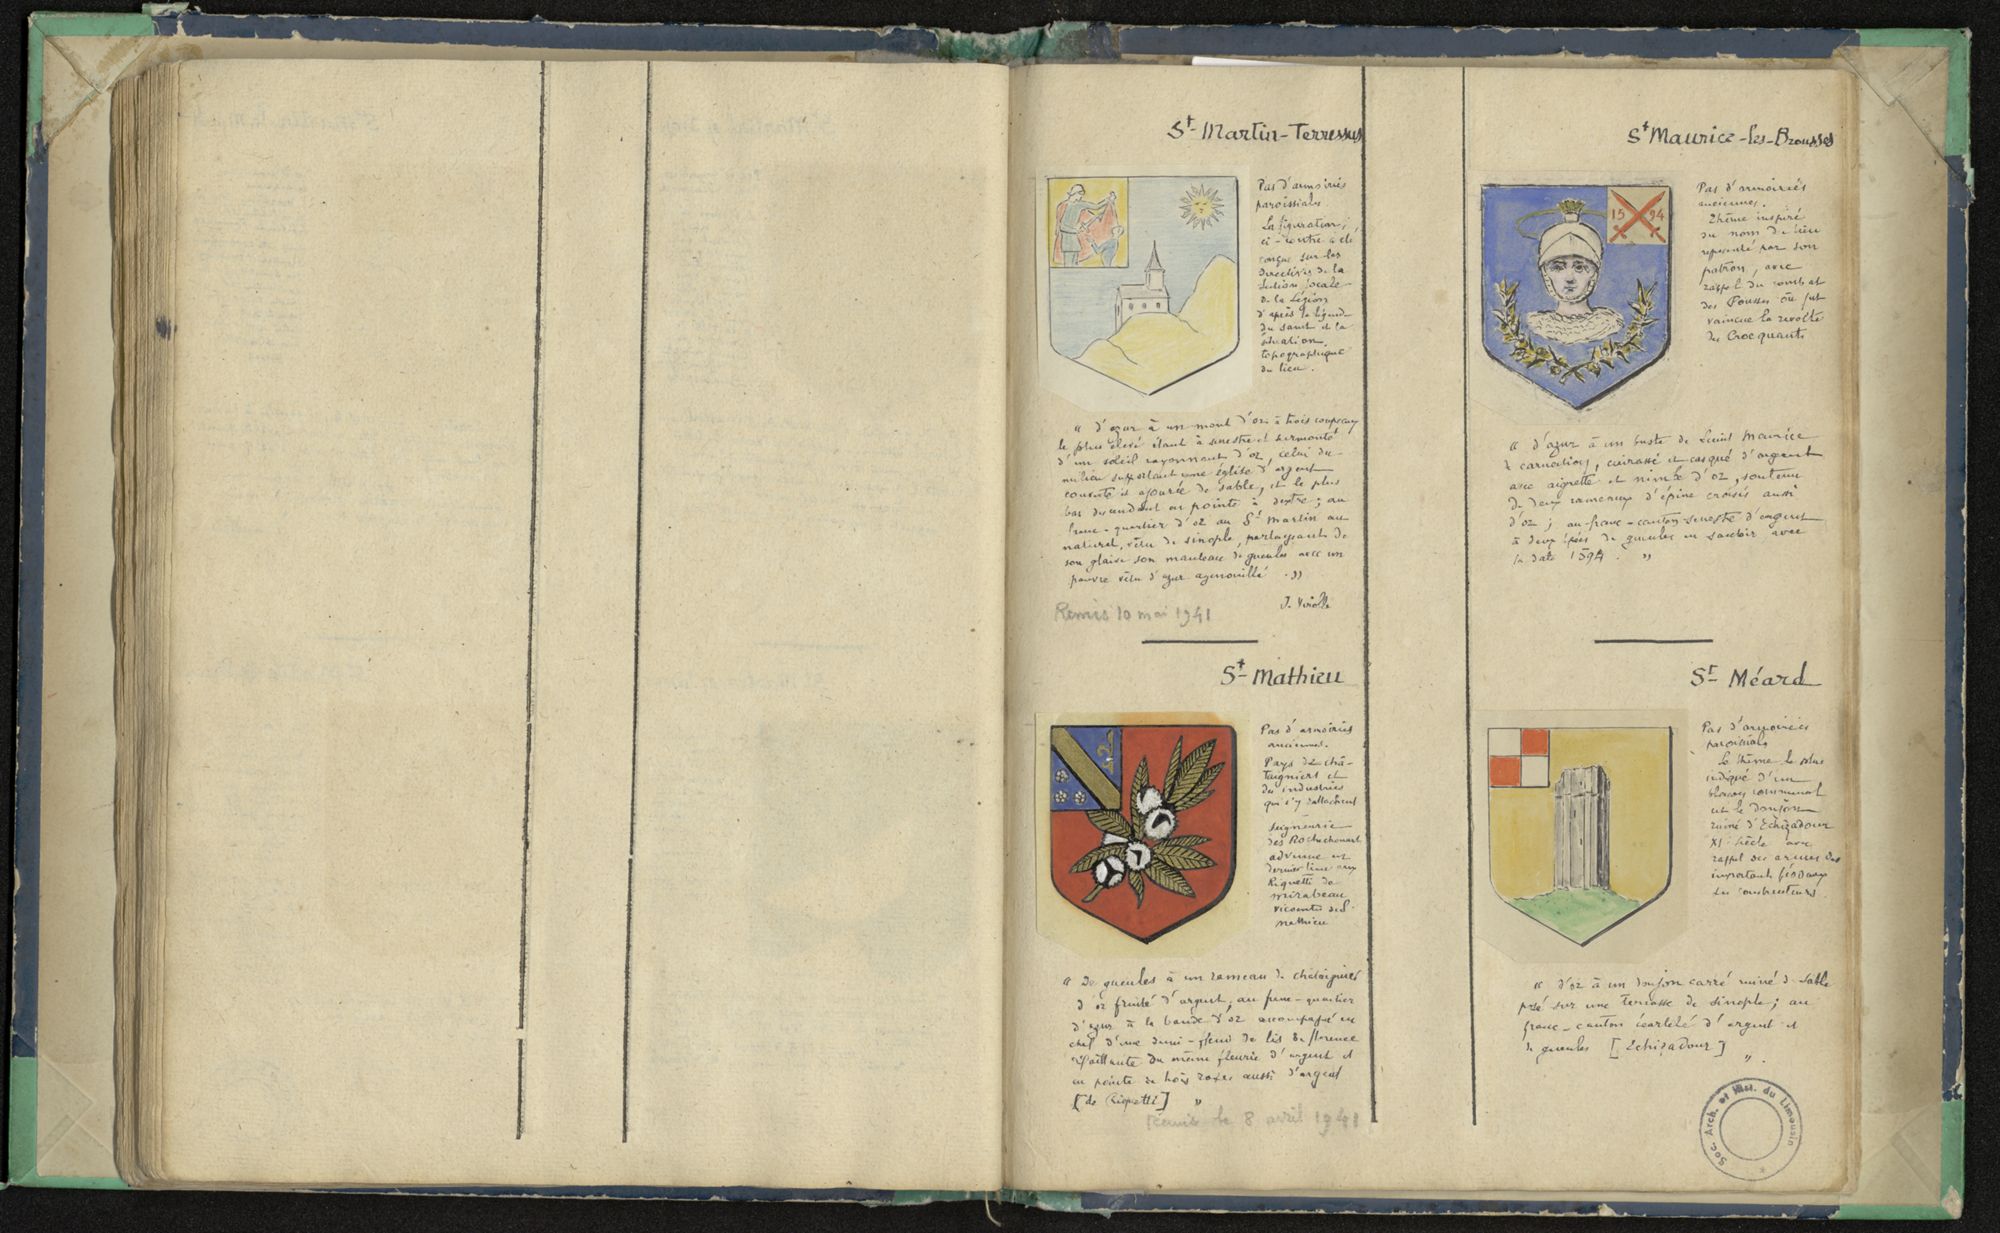 St-Martin-Terressus
Pas d'armoiries
paroissiales.
La figuration,
ci-contre a été
conçue sur les
directives de la
Section locale
de la Légion
d'après la légende
du saint et la
situation
topographique
du lieu.
« d'azur à un mont d'or à trois coupeaux
le plus élevé étant à senestre et surmonté
d'un soleil rayonnant d'or, celui du
milieu supportant une église d'argent
couverte et ajourée de sable, et le plus
bas descendant en pointe à dextre ; au
franc-quartier d'or au St Martin au
naturel, vêtu de sinople, partageant de
son glaive son manteau de gueules avec un
pauvre vêtu d'azur agenouillé . »
J. Virolle
Remis 10 mai 1941
St Mathieu
Pas d'armoiries
anciennes.
Pays de châ-
taigniers et
des industries
qui s'y rattachent
Seigneurie
des Rochechouart
advenue en
dernier lieu aux
Riquetti de
Mirabeau
vicomtes de St
Mathieu
« De gueules à un rameau de châtaignier
d'or fruité d'argent, au franc-quartier
d'azur à la bande d'or accompagné en
chef d'une demi-fleur de lis de florence
défaillante du même fleurie d'argent et
en pointe de trois roses aussi d'argent
[de Riquetti] »
Remise le 8 avril 1941
St Maurice-les-Brousses
Pas d'armoiries
anciennes.
Thème inspiré
du nom de lieu
représenté par son
patron, avec
rappel du combat
des Pousses où fut
vaincue la révolte
des Crocquants
« d'azur à un buste de Saint Maurice
de carnation, cuirassé et casqué d'argent
avec aigrette et nimbe d'or, soutenu
de deux rameaux d'épine croisés aussi
d'or ; au franc-canton senestre d'argent
à deux épées de gueules en sautoir avec
la date 1594. »
15 94
St Méard
Pas d'armoiries
paroissiales
Le thème le plus
indiqué d'un
blason communal
est le donjon
ruiné d'Echizadour
XIe siècle avec
rappel des armes des
importants féodaux
ses constructeurs
« d'or à un donjon carré ruiné de sable
posé sur une terrasse de sinople ; au
franc-canton écartelé d'argent et
de gueules [Echizadour] ».
Soc. Arch. et Hist. du Limousin